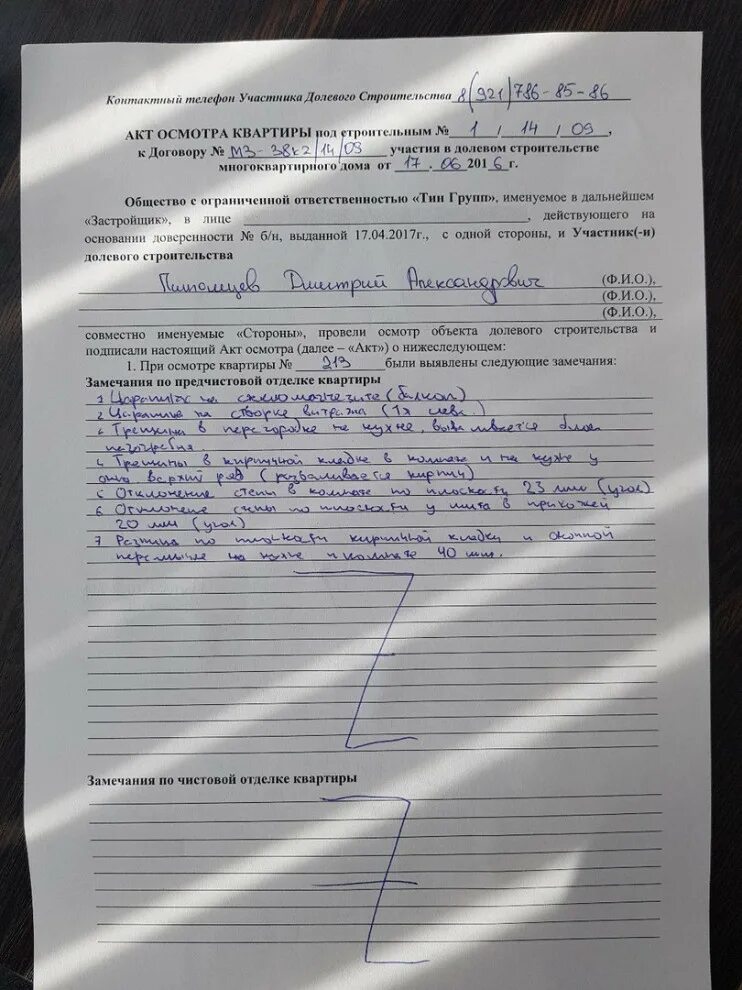 Контактный телефон Участника Долевого Строительства 8(921)786-85-86
АКТ ОСМОТРА КВАРТИРЫ под строительным № 1 / 14 / 09,
к Договору № МЗ-38к2/14/09 участия в долевом строительстве
многоквартирного дома от 17.06 2016 г.
Общество с ограниченной ответственностью «Тин Групп», именуемое в дальнейшем
«Застройщик», в лице , действующего на
основании доверенности № б/н, выданной 17.04.2017г., с одной стороны, и Участник(-и)
долевого строительства
Дмитрий Александрович (Ф.И.О.),
(Ф.И.О.),
(Ф.И.О.),
совместно именуемые «Стороны», провели осмотр объекта долевого строительства и
подписали настоящий Акт осмотра (далее – «Акт») о нижеследующем:
1. При осмотре квартиры № 213 были выявлены следующие замечания:
Замечания по предчистовой отделке квартиры
1 Царапины на стекломагнезите (балкон)
2 Царапина на створке витража (1я слева)
Трещина в перегородке на кухне, вываливается блок
4 Трещины в кирпичной кладке в комнате и на кухне у
окна верхний ряд (разваливается кирпич)
5 Отклонение стены в комнате по плоскости 23 мм (угол)
6 Отклонение стены по плоскости у щита в прихожей
20 мм (угол)
7 Разница по плоскости кирпичной кладки и оконной
перемычке на кухне и комнате 40 мм.
Замечания по чистовой отделке квартиры